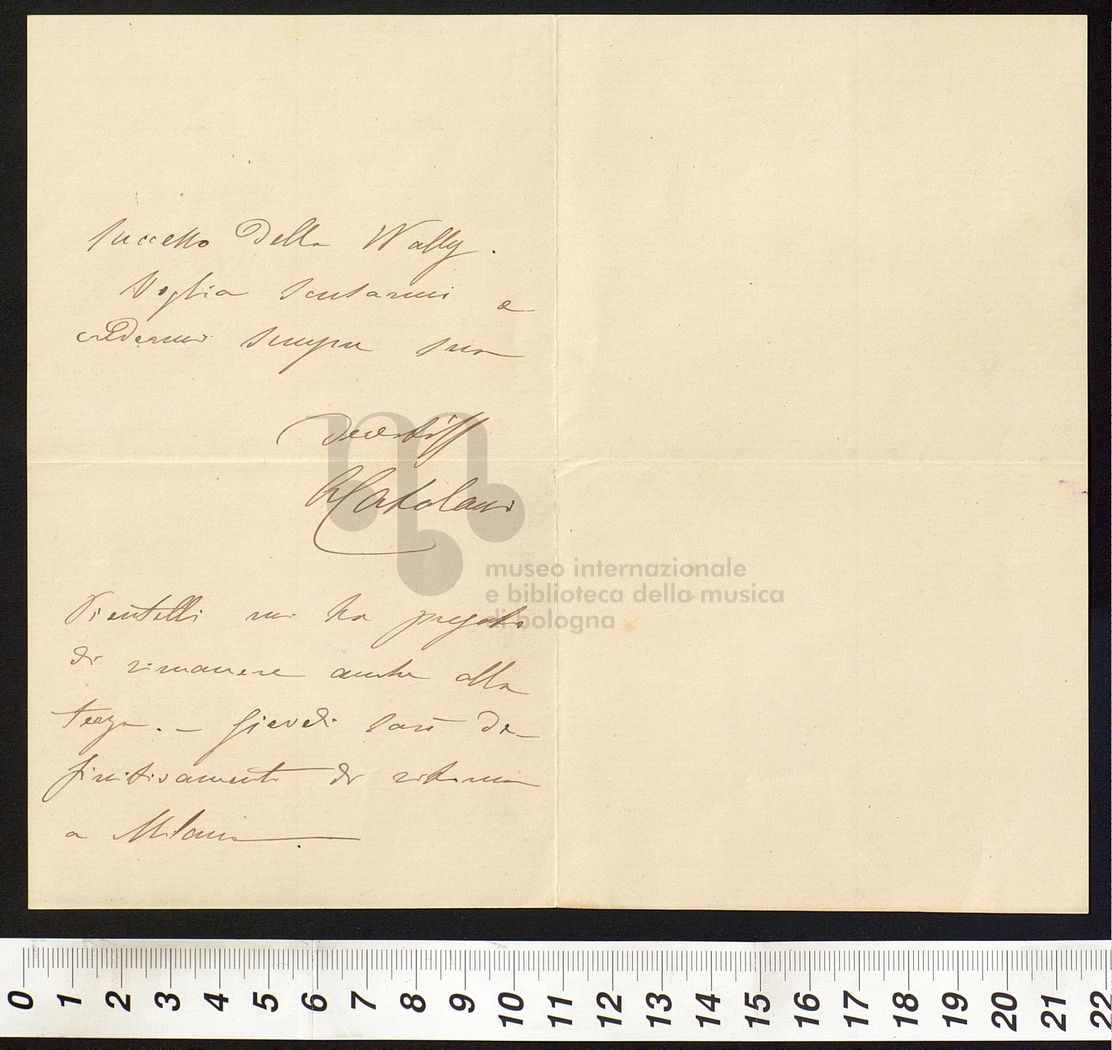 successo della Wally.
Voglia scusarmi e
credermi sempre suo
Devotiss
ACatalani
Pientelli mi ha pregato
di rimanere anche alla
terza. – Giovedì sarò de-
finitivamente di ritorno
a Milano.
museo internazionale
e biblioteca della musica
di bologna
0 1 2 3 4 5 6 7 8 9 10 11 12 13 14 15 16 17 18 19 20 21 22